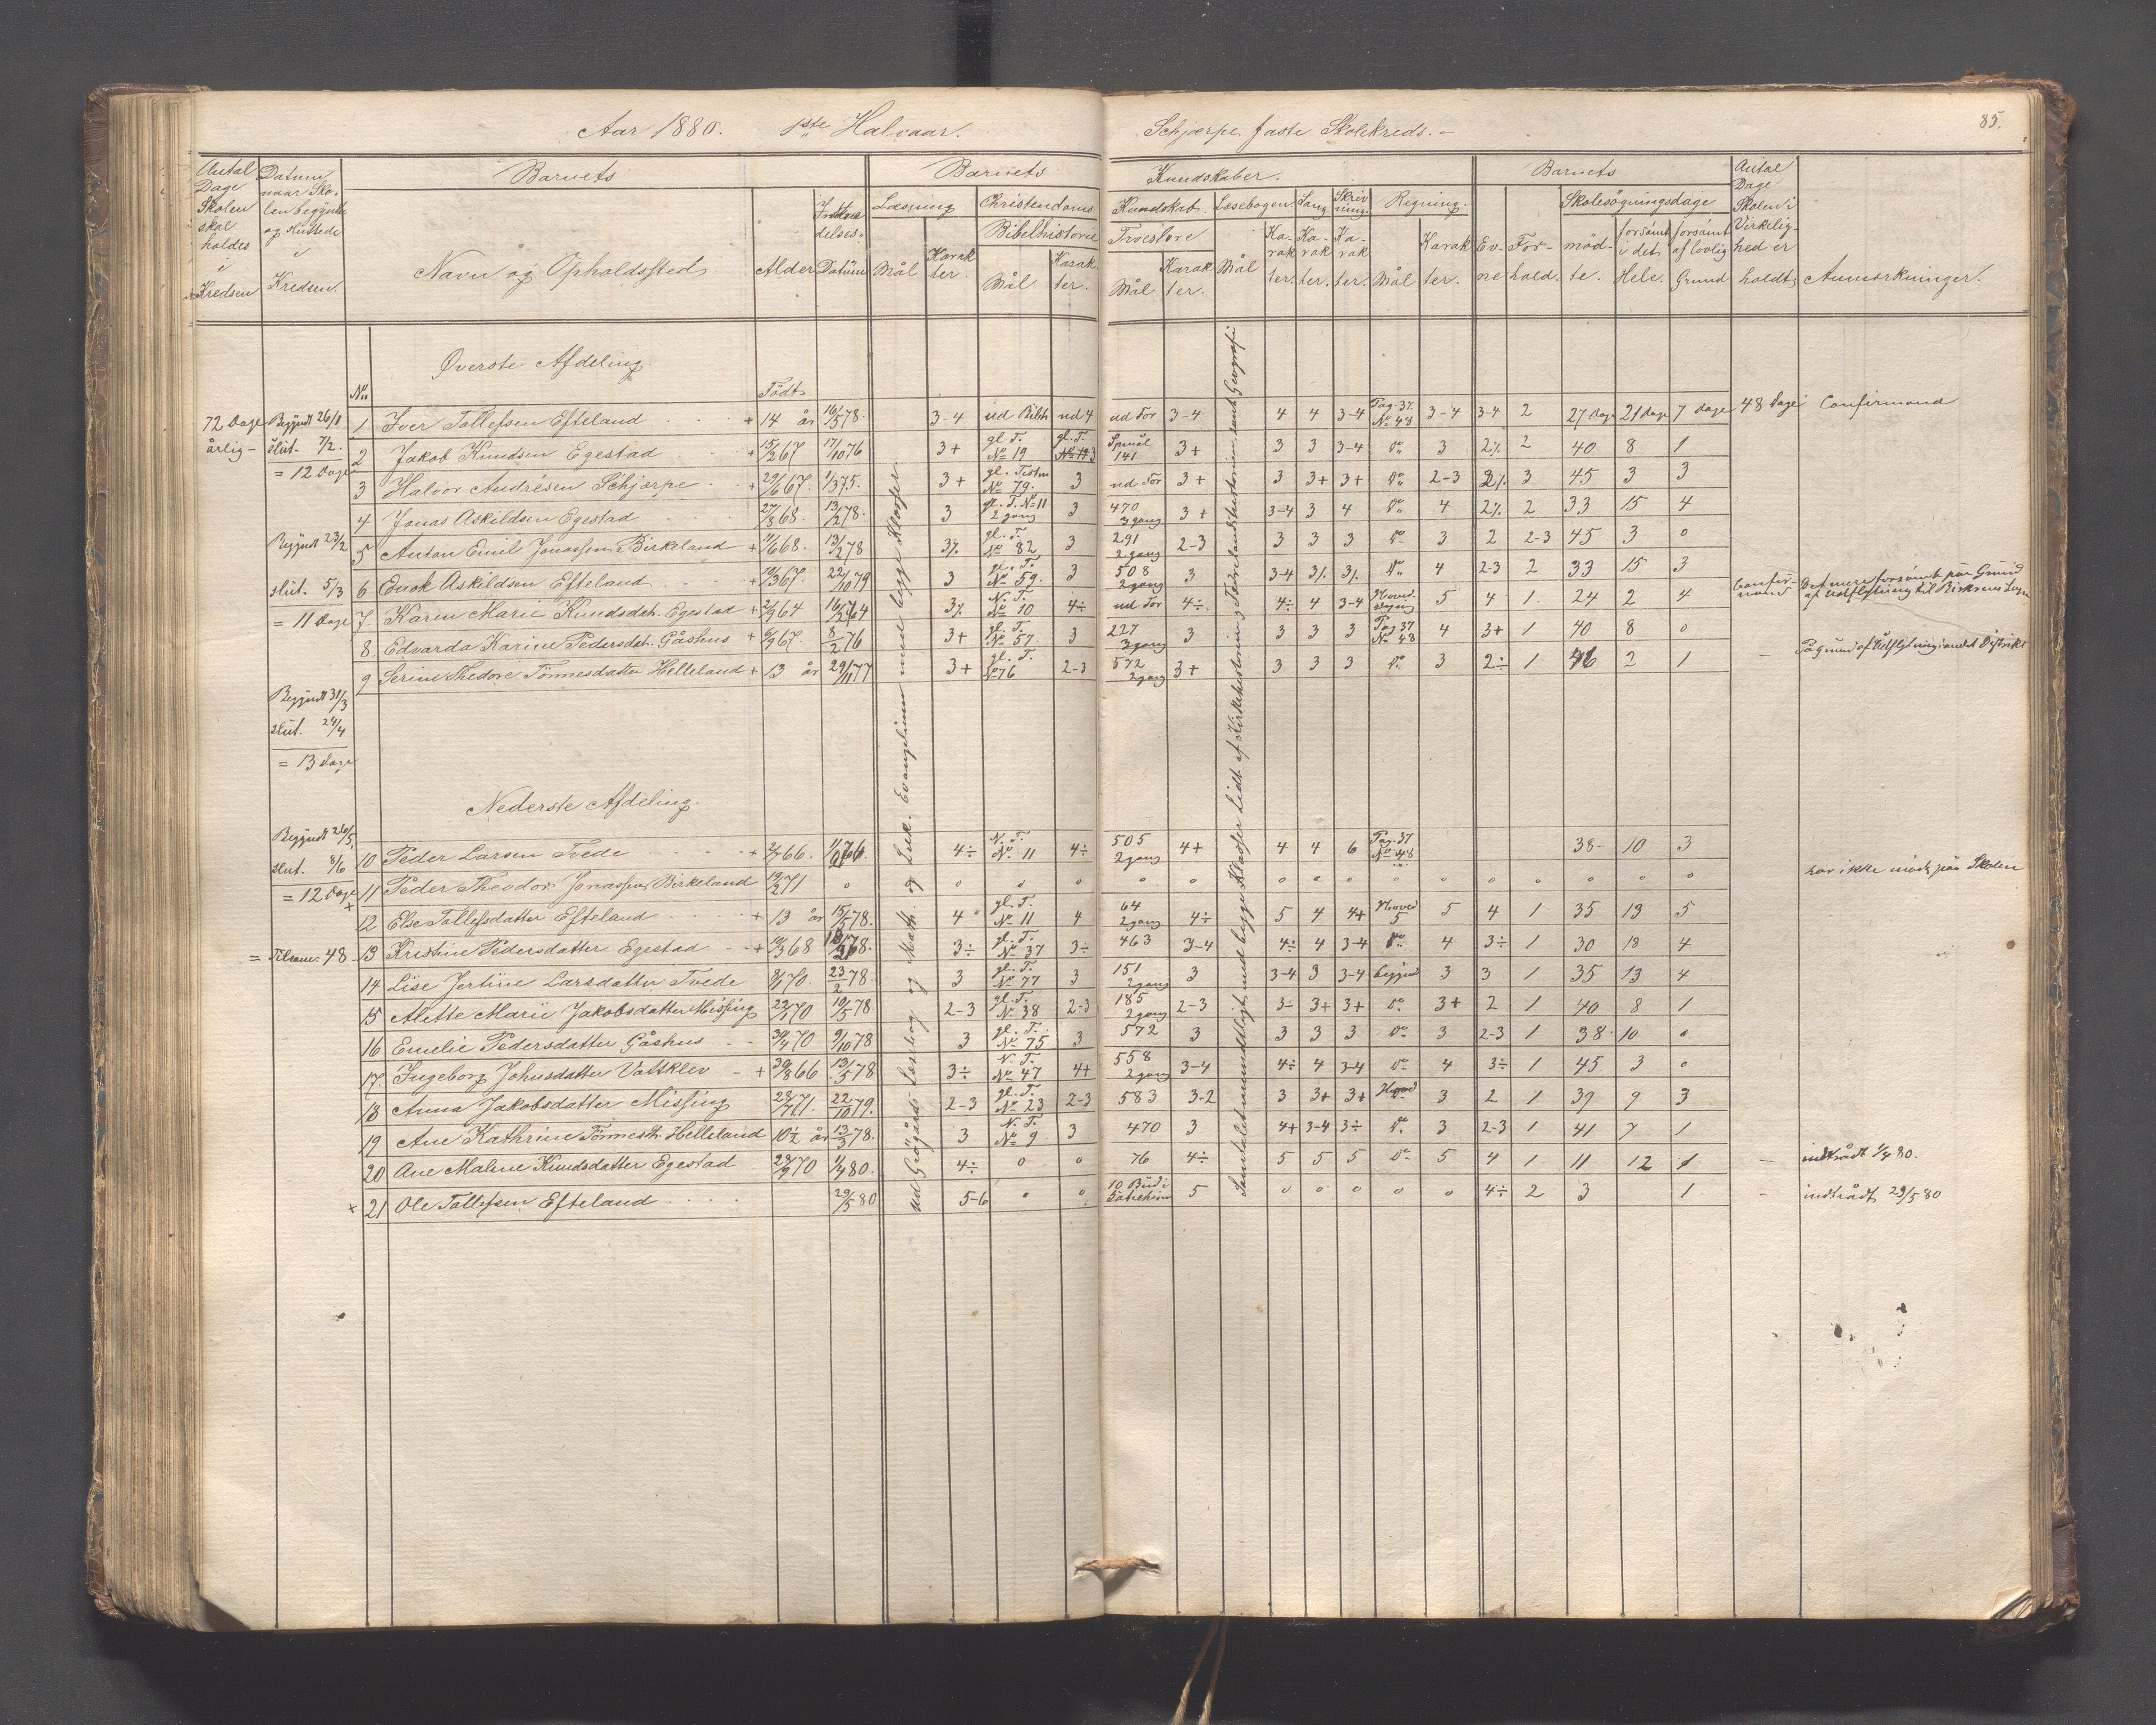 Aar 1880. 1ste Halvaar. Schjærpe faste Skolekreds.- 85.
Antal Dage Skolen skal holdes i Kredsen
Datum naar Skolen begyndte og sluttede i Kredsen.
Barnets
Navn og Opholdssted
Alder
Indtrædelses-Datum
Barnets Kundskaber.
Læsning Mål Karakter.
Christendoms Kundskab.
Bibelhistorie Mål Karakter.
Troeslære Mål Karakter.
Læsebogen. Mål Karakter.
Sang Karakter.
Skrivning. Karakter.
Regning. Mål Karakter.
Barnets
Evne Forhold.
Skolesøgningsdage
mødte. forsömt i det Hele. forsömt af lovlig Grund
Antal Dage Skolen i Virkelighed er holdt
Anmærkninger.
Øverste Afdeling.
No Födt
72 Dage årlig-
Begyndt 26/1
slut. 7/2.
= 12 Dage
Begyndt 23/2
slut. 5/3
= 11 Dage
Begyndt 31/3
slut. 24/4
= 13 Dage
Begyndt 26/5.
slut. 8/6
= 12 Dage
= Tilsam. 48
ud Grögårds Læsebog og Math. og Luk. Evangelium med begge Klasser
Samtalet mundtligt med begge Klasser lidt af Kirkehistorien, Fædrelandshistorien samt Geografi
1 Iver Tollefsen Efteland + 14 år 16/5 78. 3-4 ud Bibh ud 4 ud For 3-4 4 4 3-4 Pag. 37. No 48 3-4 3-4 2 27 dage 21 dage 7 dage 48 Dage Confirmand
2 Jakob Knudsen Egestad + 15/2 67 17/10 76 3+ gl. T. No 19 gl. T. 3 Spml 141 3+ 3 3 3-4 do 3 2% 2 40 8 1
3 Halvor Andrésen Schjærpe + 29/6 67. 1/3 75. 3+ gl. Testm No 79. 3 ud For 3+ 3 3+ 3+ do 2-3 2% 3 45 3 3
4 Jonas Askildsen Egestad 27/3 68. 13/2 78. 3 gl. T. No 11 2 gang 3 470 3 gang 3+ 3-4 3 4 do 4 2% 2 33 15 4
5 Anton Emil Jonassen Birkeland + 11/6 68. 13/2 78 3% gl. T. No 82 3 291 2 gang 2-3 3 3 3 do 3 2 2-3 45 3 0
6 Enok Askildsen Efteland + 19/3 67. 22/10 79 3 gl. T. No 59. 3 508 2 gang 3 3-4 3% 3% do 4 2-3 2 33 15 3
7. Karen Marie Knudsdatt. Egestad + 2/9 64 3% N. T. No 10 4÷ ud For 4÷ 4÷ 4 3-4 Hovedregning 5 4 1 24 2 4 Confirmand
8. Edvarda Karine Pedersdat. Gåshus + 6/9 67. 8/2 76 3+ gl. T. No 57. 3 227 3 gang 3 3 3 3 Pag 37 No 48 4 3+ 1 40 8 0
9 Serine Thedore Tönnesdatter Helleland + 13 år 29/11 77 3+ gl. T. No 76 2-3 572 2 gang 3+ 3 3 3 do 3 2÷ 1 46 2 1 På Grund af Udflytning i andet Distrikt
Nederste Afdeling.
10 Peder Larsen Tvede + 2/7 66. 4÷ N. T. No 11 4÷ 505 2 gang 4+ 4 4 6 Pag. 37 No 48 38- 10 3
11 Peder Theodor Jonassen Birkeland 19/2 71 0 0 0 0 0 0 0 0 0 0 0 0 0 0 0 0 har ikke mödt på Skolen
12 Else Tollefsdatter Efteland + 13 år 15/5 78. 4 gl. T. No 11 4 64 2 gang 4÷ 5 4 4+ Hoved 5 5 4 1 35 13 5
13 Kristine Pedersdatter Egestad + 19/3 68 3÷ gl. T. No 37 3÷ 463 3-4 4÷ 4 3-4 do 4 3÷ 1 30 18 4
14 Lise Jertine Larsdatter Tvede 8/1 70. 23/2 78. 3 gl. T. No 77 3 151 2 gang 3 3-4 3 3-4 begynd 3 3 1 35 13 4
15 Alette Marie Jakobsdatter Missing 22/1 70 10/5 78 2-3 gl. T. No 38 2-3 185 2 gang 2-3 3÷ 3+ 3+ do 3+ 2 1 40 8 1
16 Emelie Pedersdatter Gåshus 30/4 70 9/10 78 3 gl. T. No 75 3 572 3 3 3 3 do 3 2-3 1 38 10 0
17. Ingeborg Johnsdatter Vattklev + 30/8 66 13/5 78 3÷ N. T. No 47 4+ 558 2 gang 3-4 4÷ 4 3-4 do 4 3÷ 1 45 3 0
18 Anna Jakobsdatter Missing 28/7 71. 22/10 79. 2-3 gl. T. No 23 2-3 583 3-2 3 3+ 3+ Hoved 3 2 1 39 9 3
19 Ane Kathrine Tönnesdt. Helleland 10½ år 13/3 78. 3 N. T. No 9 3 470 3 4+ 3-4 3÷ do 3 2-3 1 41 7 1
20 Ane Maline Knudsdatter Egestad 28/9 70 1/4 80. 4÷ 0 0 76 4÷ 5 5 5 do 5 4 1 11 12 1 - indtrådt 1/4 80.
21 Ole Tollefsen Efteland 29/5 80 5-6 0 0 10 Bud i 5 0 0 0 0 0 4÷ 2 3 1 - indtrådt 29/5 80